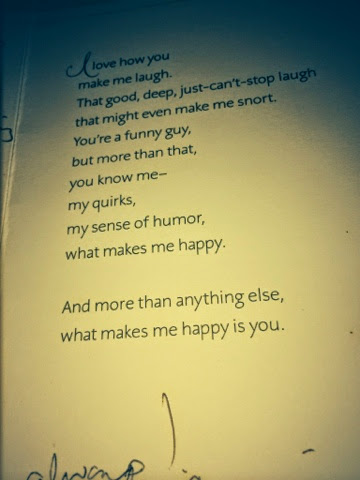 I love how you
make me laugh.
That good, deep, just-can't-stop laugh
that might even make me snort.
You're a funny guy,
but more than that,
you know me–
my quirks,
my sense of humor,
what makes me happy.
And more than anything else,
what makes me happy is you.
always